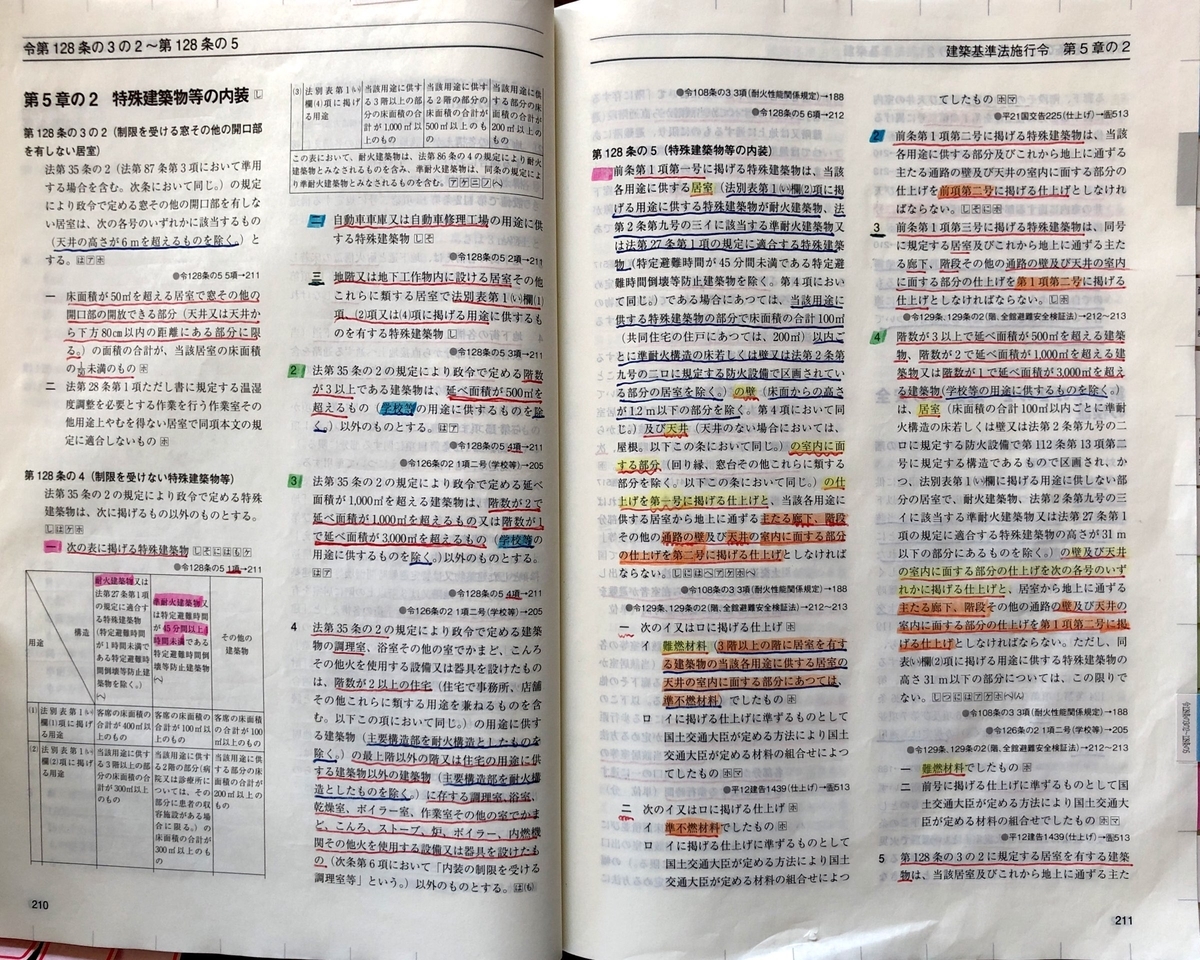 令第128条の3の2〜第128条の5
第5章の2 特殊建築物等の内装
第128条の3の2（制限を受ける窓その他の開口部
を有しない居室）
法第35条の2（法第87条第3項において準用
する場合を含む。次条において同じ。）の規定
により政令で定める窓その他の開口部を有しな
い居室は、次の各号のいずれかに該当するもの
（天井の高さが6mを超えるものを除く。）と
する。
●令128条の5 5項→211
一 床面積が50㎡を超える居室で窓その他の
開口部の開放できる部分（天井又は天井か
ら下方80cm以内の距離にある部分に限
る。）の面積の合計が、当該居室の床面積
の1/50未満のもの
二 法第28条第1項ただし書に規定する温湿
度調整を必要とする作業を行う作業室その
他用途上やむを得ない居室で同項本文の規
定に適合しないもの
第128条の4（制限を受けない特殊建築物等）
法第35条の2の規定により政令で定める特殊
建築物は、次に掲げるもの以外のものとする。
一 次の表に掲げる特殊建築物
●令128条の5 1項→211
構造
用途
耐火建築物又は
法第27条第1項
の規定に適合す
る特殊建築物
（特定避難時間
が1時間未満で
ある特定避難時
間倒壊等防止建
築物を除く。）
準耐火建築物又
は特定避難時間
が45分間以上1
時間未満である
特定避難時間倒
壊等防止建築物
その他の
建築物
(1) 法別表第1(い)
欄(1)項に掲げ
る用途
客席の床面積の
合計が400㎡以上
のもの
客席の床面積の
合計が100㎡以上
のもの
客席の床面積
の合計が100
㎡以上のもの
(2) 法別表第1(い)
欄(2)項に掲げ
る用途
当該用途に供す
る3階以上の部
分の床面積の合
計が300㎡以上の
もの
当該用途に供す
る2階の部分（病
院又は診療所に
ついては、その
部分に患者の収
容施設がある場
合に限る。）の
床面積の合計が
300㎡以上のも
の
当該用途に供
する部分の床
面積の合計が
200㎡以上の
もの
210
(3) 法別表第1(い)
欄(4)項に掲げ
る用途
当該用途に供す
る3階以上の部
分の床面積の合
計が1,000㎡以上
のもの
当該用途に供す
る2階の部分の
床面積の合計が
500㎡以上のも
の
当該用途に供
する部分の床
面積の合計が
200㎡以上の
もの
この表において、耐火建築物は、法第86条の4の規定により耐火
建築物とみなされるものを含み、準耐火建築物は、同条の規定によ
り準耐火建築物とみなされるものを含む。
二 自動車車庫又は自動車修理工場の用途に供
する特殊建築物
●令128条の5 2項→211
三 地階又は地下工作物内に設ける居室その他
これらに類する居室で法別表第1(い)欄(1)
項、(2)項又は(4)項に掲げる用途に供するも
のを有する特殊建築物
●令128条の5 3項→211
2 法第35条の2の規定により政令で定める階数
が3以上である建築物は、延べ面積が500㎡を
超えるもの（学校等の用途に供するものを除
く。）以外のものとする。
●令128条の5 4項→211
●令126条の2 1項二号（学校等）→205
3 法第35条の2の規定により政令で定める延べ
面積が1,000㎡を超える建築物は、階数が2で
延べ面積が1,000㎡を超えるもの又は階数が1
で延べ面積が3,000㎡を超えるもの（学校等の
用途に供するものを除く。）以外のものとする。
●令128条の5 4項→211
●令126条の2 1項二号（学校等）→205
4 法第35条の2の規定により政令で定める建築
物の調理室、浴室その他の室でかまど、こんろ
その他火を使用する設備又は器具を設けたもの
は、階数が2以上の住宅（住宅で事務所、店舗
その他これらに類する用途を兼ねるものを含
む。以下この項において同じ。）の用途に供す
る建築物（主要構造部を耐火構造としたものを
除く。）の最上階以外の階又は住宅の用途に供す
る建築物以外の建築物（主要構造部を耐火構
造としたものを除く。）に存する調理室、浴室、
乾燥室、ボイラー室、作業室その他の室でかま
ど、こんろ、ストーブ、炉、ボイラー、内燃機
関その他火を使用する設備又は器具を設けたも
の（次条第6項において「内装の制限を受ける
調理室等」という。）以外のものとする。
建築基準法施行令 第5章の2
●令108条の3 3項（耐火性能関係規定）→188
●令128条の5 6項→212
第128条の5（特殊建築物等の内装）
前条第1項第一号に掲げる特殊建築物は、当該
各用途に供する居室（法別表第1(い)欄(2)項に掲
げる用途に供する特殊建築物が耐火建築物、法
第2条第九号の三イに該当する準耐火建築物又
は法第27条第1項の規定に適合する特殊建築
物（特定避難時間が45分間未満である特定避
難時間倒壊等防止建築物を除く。第4項におい
て同じ。）である場合にあつては、当該用途に
供する特殊建築物の部分で床面積の合計100㎡
（共同住宅の住戸にあつては、200㎡）以内ご
とに準耐火構造の床若しくは壁又は法第2条第
九号の二ロに規定する防火設備で区画されてい
る部分の居室を除く。）の壁（床面からの高さ
が1.2m以下の部分を除く。第4項において同
じ。）及び天井（天井のない場合においては、
屋根。以下この条において同じ。）の室内に面
する部分（回り縁、窓台その他これらに類する
部分を除く。以下この条において同じ。）の仕
上げを第一号に掲げる仕上げと、当該各用途に
供する居室から地上に通ずる主たる廊下、階段
その他の通路の壁及び天井の室内に面する部分
の仕上げを第二号に掲げる仕上げとしなければ
ならない。
●令108条の3 3項（耐火性能関係規定）→188
●令129条、129条の2（階、全館避難安全検証法）→212〜213
一 次のイ又はロに掲げる仕上げ
イ 難燃材料（3階以上の階に居室を有す
る建築物の当該各用途に供する居室の
天井の室内に面する部分にあつては、
準不燃材料）でしたもの
ロ イに掲げる仕上げに準ずるものとして
国土交通大臣が定める方法により国土
交通大臣が定める材料の組合せによつ
てしたもの
●平12建告1439（仕上げ）→告513
二 次のイ又はロに掲げる仕上げ
イ 準不燃材料でしたもの
ロ イに掲げる仕上げに準ずるものとして
国土交通大臣が定める方法により国土
交通大臣が定める材料の組合せによつ
てしたもの
●平21国交告225（仕上げ）→告513
2 前条第1項第二号に掲げる特殊建築物は、当該
各用途に供する部分及びこれから地上に通ずる
主たる通路の壁及び天井の室内に面する部分の
仕上げを前項第二号に掲げる仕上げとしなけれ
ばならない。
3 前条第1項第三号に掲げる特殊建築物は、同号
に規定する居室及びこれから地上に通ずる主た
る廊下、階段その他の通路の壁及び天井の室内
に面する部分の仕上げを第1項第二号に掲げる
仕上げとしなければならない。
●令129条、129条の2（階、全館避難安全検証法）→212〜213
4 階数が3以上で延べ面積が500㎡を超える建築
物、階数が2で延べ面積が1,000㎡を超える建
築物又は階数が1で延べ面積が3,000㎡を超え
る建築物（学校等の用途に供するものを除く。）
は、居室（床面積の合計100㎡以内ごとに準耐
火構造の床若しくは壁又は法第2条第九号の二
ロに規定する防火設備で第112条第13項第二
号に規定する構造であるもので区画され、か
つ、法別表第1(い)欄に掲げる用途に供しない部
分の居室で、耐火建築物、法第2条第九号の三
イに該当する準耐火建築物又は法第27条第1
項の規定に適合する特殊建築物の高さが31m
以下の部分にあるものを除く。）の壁及び天井
の室内に面する部分の仕上げを次の各号のいず
れかに掲げる仕上げと、居室から地上に通ずる
主たる廊下、階段その他の通路の壁及び天井の
室内に面する部分の仕上げを第1項第二号に掲
げる仕上げとしなければならない。ただし、同
表(い)欄(2)項に掲げる用途に供する特殊建築物の
高さ31m以下の部分については、この限りで
ない。
●令108条の3 3項（耐火性能関係規定）→188
●令126条の2 1項二号（学校等）→205
●令129条、129条の2（階、全館避難安全検証法）→212〜213
一 難燃材料でしたもの
二 前号に掲げる仕上げに準ずるものとして国
土交通大臣が定める方法により国土交通大
臣が定める材料の組合せでしたもの
●平12建告1439（仕上げ）→告513
5 第128条の3の2に規定する居室を有する建築
物は、当該居室及びこれから地上に通ずる主た
211